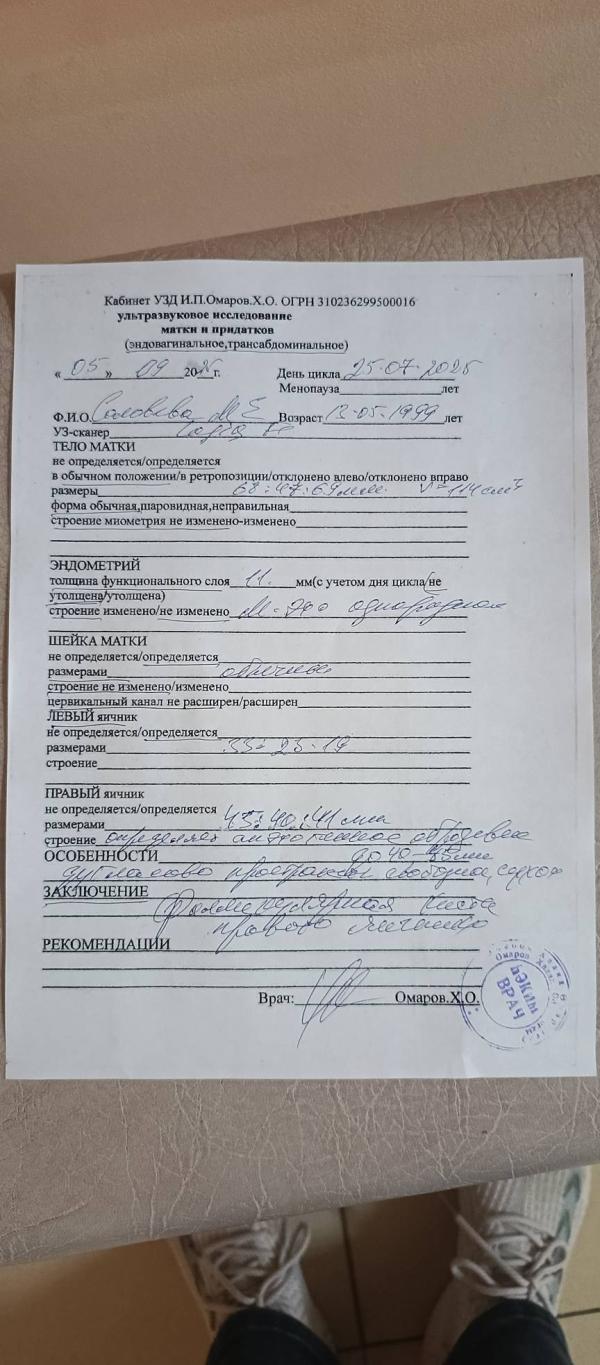 Кабинет УЗД И.П.Омаров.Х.О. ОГРН 310236299500016
ультразвуковое исследование
матки и придатков
(эндовагинальное,трансабдоминальное)
« 05 » 09 20 г. День цикла 25.07.2025
Менопауза лет
Ф.И.О. Соловьева М Е Возраст 13.05.1999 лет
УЗ-сканер
ТЕЛО МАТКИ
не определяется/определяется
в обычном положении/в ретропозиции/отклонено влево/отклонено вправо
размеры 68 47 69 мм V=114 см³
форма обычная,шаровидная,неправильная
строение миометрия не изменено-изменено
ЭНДОМЕТРИЙ
толщина функционального слоя 11 мм(с учетом дня цикла/не
утолщена/утолщена)
строение изменено/не изменено М-эхо однородное
ШЕЙКА МАТКИ
не определяется/определяется
размерами обычные
строение не изменено/изменено
цервикальный канал не расширен/расширен
ЛЕВЫЙ яичник
не определяется/определяется
размерами 33 23 19
строение
ПРАВЫЙ яичник
не определяется/определяется
размерами 45 40 41 мм
строение определяет анэхогенное образование
ОСОБЕННОСТИ до 40 мм
дугласово пространство свободное,
ЗАКЛЮЧЕНИЕ Фолликулярная киста
правого яичника
РЕКОМЕНДАЦИИ
Врач: Омаров.Х.О.
ВРАЧ